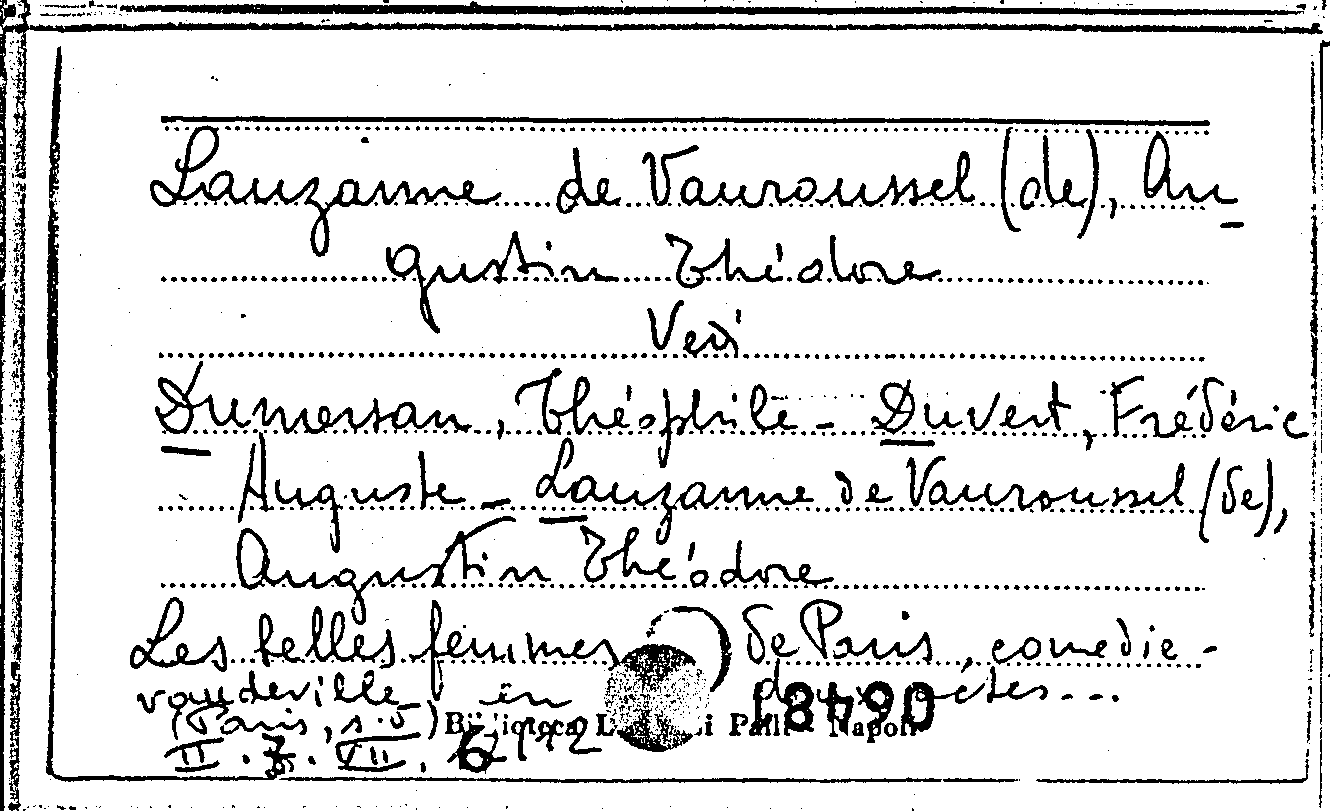 Lauzanne de Vauroussel (de), Au-
gustin Théodore
Vedi
Dumersan, Théophile - Duvert, Frédéric
Auguste - Lauzanne de Vauroussel (de),
Augustin Théodore
Les belles femmes de Paris, comedie-
vaudeville en actes...
(Paris, s.d.) Biblioteca Napoli
II. VII. 6